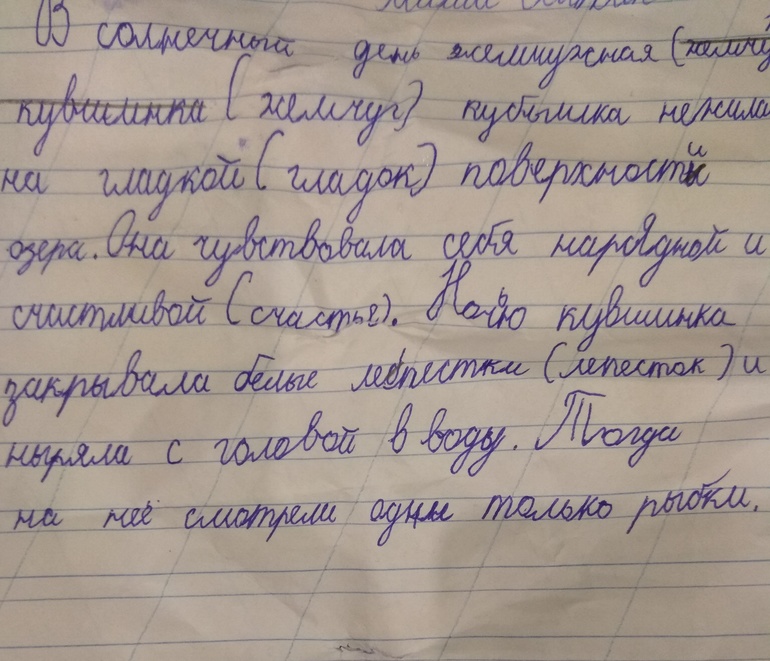 В солнечный день жемчужная (жемчу
кувшинка (жемчуг) кубышка нежила
на гладкой (гладок) поверхности
озера. Она чувствовала себя нарядной и
счастливой (счастье). Ночью кувшинка
закрывала белые лепестки (лепесток) и
ныряла с головой в воду. Тогда
на неё смотрели одни только рыбки.